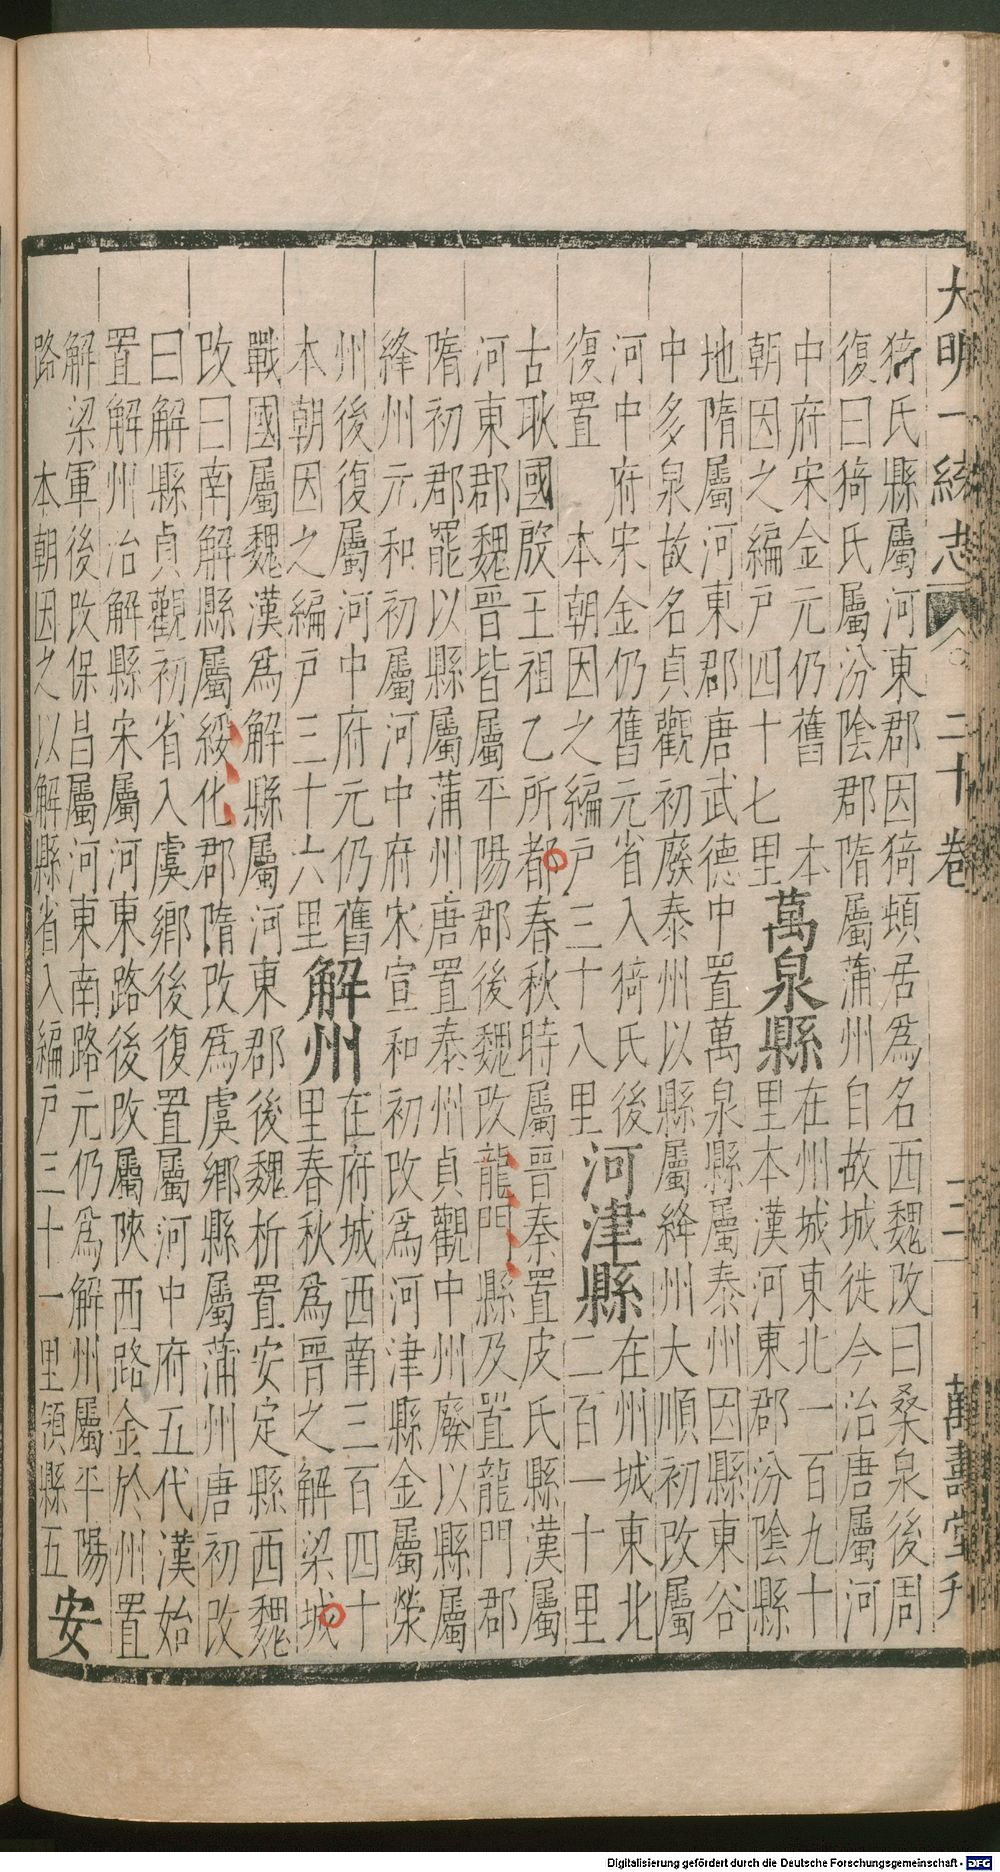 大明一統志 二十卷 三 萬壽堂刊
猗氏縣屬河東郡因猗頓居爲名西魏改曰桑泉後周
復曰猗氏屬汾隂郡隋屬蒲州自故城徙今治唐屬河
中府宋金元仍舊 本
朝因之編戸四十七里
萬泉縣
在州城東北一百九十
里本漢河東郡汾隂縣
地隋屬河東郡唐武德中置萬泉縣屬泰州因縣東谷
中多泉故名貞觀初廢泰州以縣屬絳州大順初改屬
河中府宋金仍舊元省入猗氏後
復置 本朝因之編戸三十入里
河津縣
在州城東北
二百一十里
古耿國殷王祖乙所都春秋時屬晉秦置皮氏縣漢屬
河東郡魏晉皆屬平陽郡後魏改龍門縣及置龍門郡
隋初郡罷以縣屬蒲州唐置泰州貞觀中州廢以縣屬
絳州元和初屬河中府宋宣和初改爲河津縣金屬榮
州後復屬河中府元仍舊
本朝因之編戸三十六里
解州
在府城西南三百四十
里春秋爲晉之解梁城
戰國屬魏漢爲解縣屬河東郡後魏析置安定縣西魏
改曰南解縣屬綏化郡隋改爲虞鄉縣屬蒲州唐初改
曰解縣貞觀初省入虞鄉後復置屬河中府五代漢始
置解州治解縣宋屬河東路後改屬陝西路金於州置
解梁軍後改保昌屬河東南路元仍爲解州屬平陽
路 本朝因之以解縣省入編戸三十一里領縣五
安
Digitalisierung gefördert durch die Deutsche Forschungsgemeinschaft - DFG